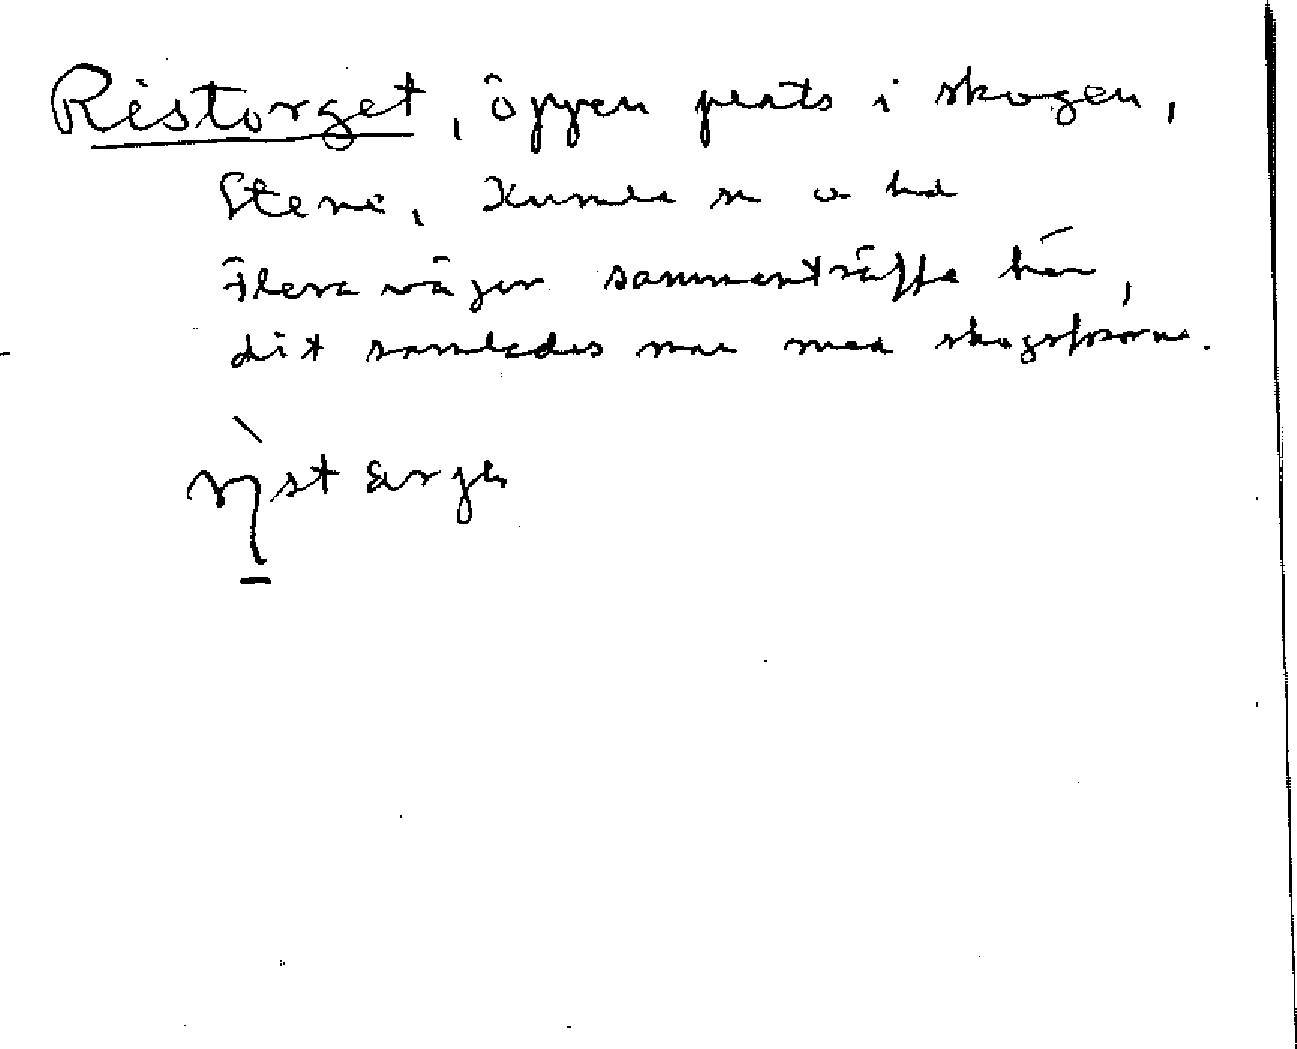 Ristorget, öppen plats i skogen,
Stene, Kumla sn o hd
Flera vägar sammanträffa här,
dit samlades man med skogsfororna.